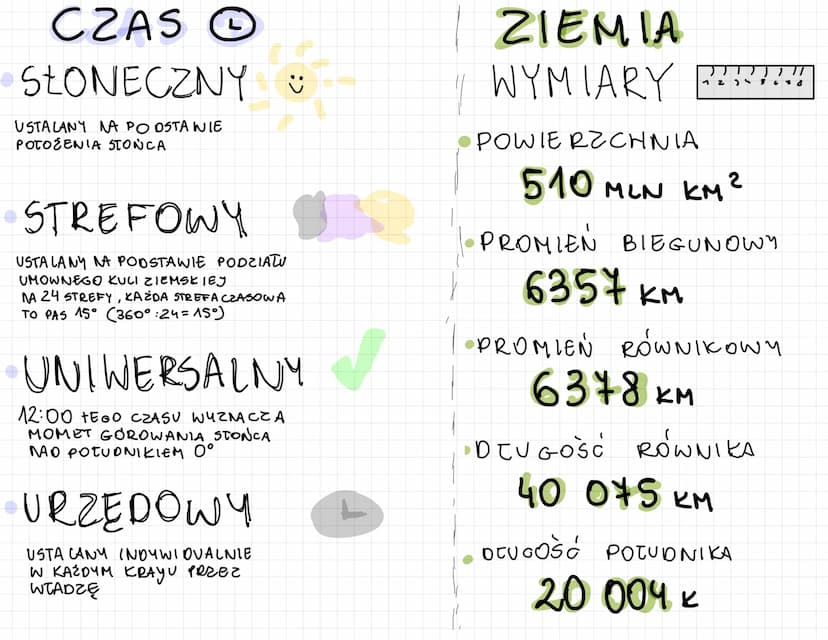 CZAS
SŁONECZNY
USTALANY NA PODSTAWIE
POŁOŻENIA SŁOŃCA
STREFOWY
USTALANY NA PODSTAWIE PODZIAŁU
UMOWNEGO KULI ZIEMSKIEJ
NA 24 STREFY, KAŻDA STREFA CZASOWA
TO PAS 15° (360°:24=15°)
UNIWERSALNY
12:00 TEGO CZASU WYZNACZA
MOMET GÓROWANIA SŁOŃCA
NAD POŁUDNIKIEM 0°
URZĘDOWY
USTALANY INDYWIDUALNIE
W KAŻDYM KRAJU PRZEZ
WŁADZĘ
ZIEMIA
WYMIARY
POWIERZCHNIA
510 MLN KM²
PROMIEŃ BIEGUNOWY
6357 KM
PROMIEŃ RÓWNIKOWY
6378 KM
DŁUGOŚĆ RÓWNIKA
40 075 KM
DŁUGOŚĆ POŁUDNIKA
20 004 K